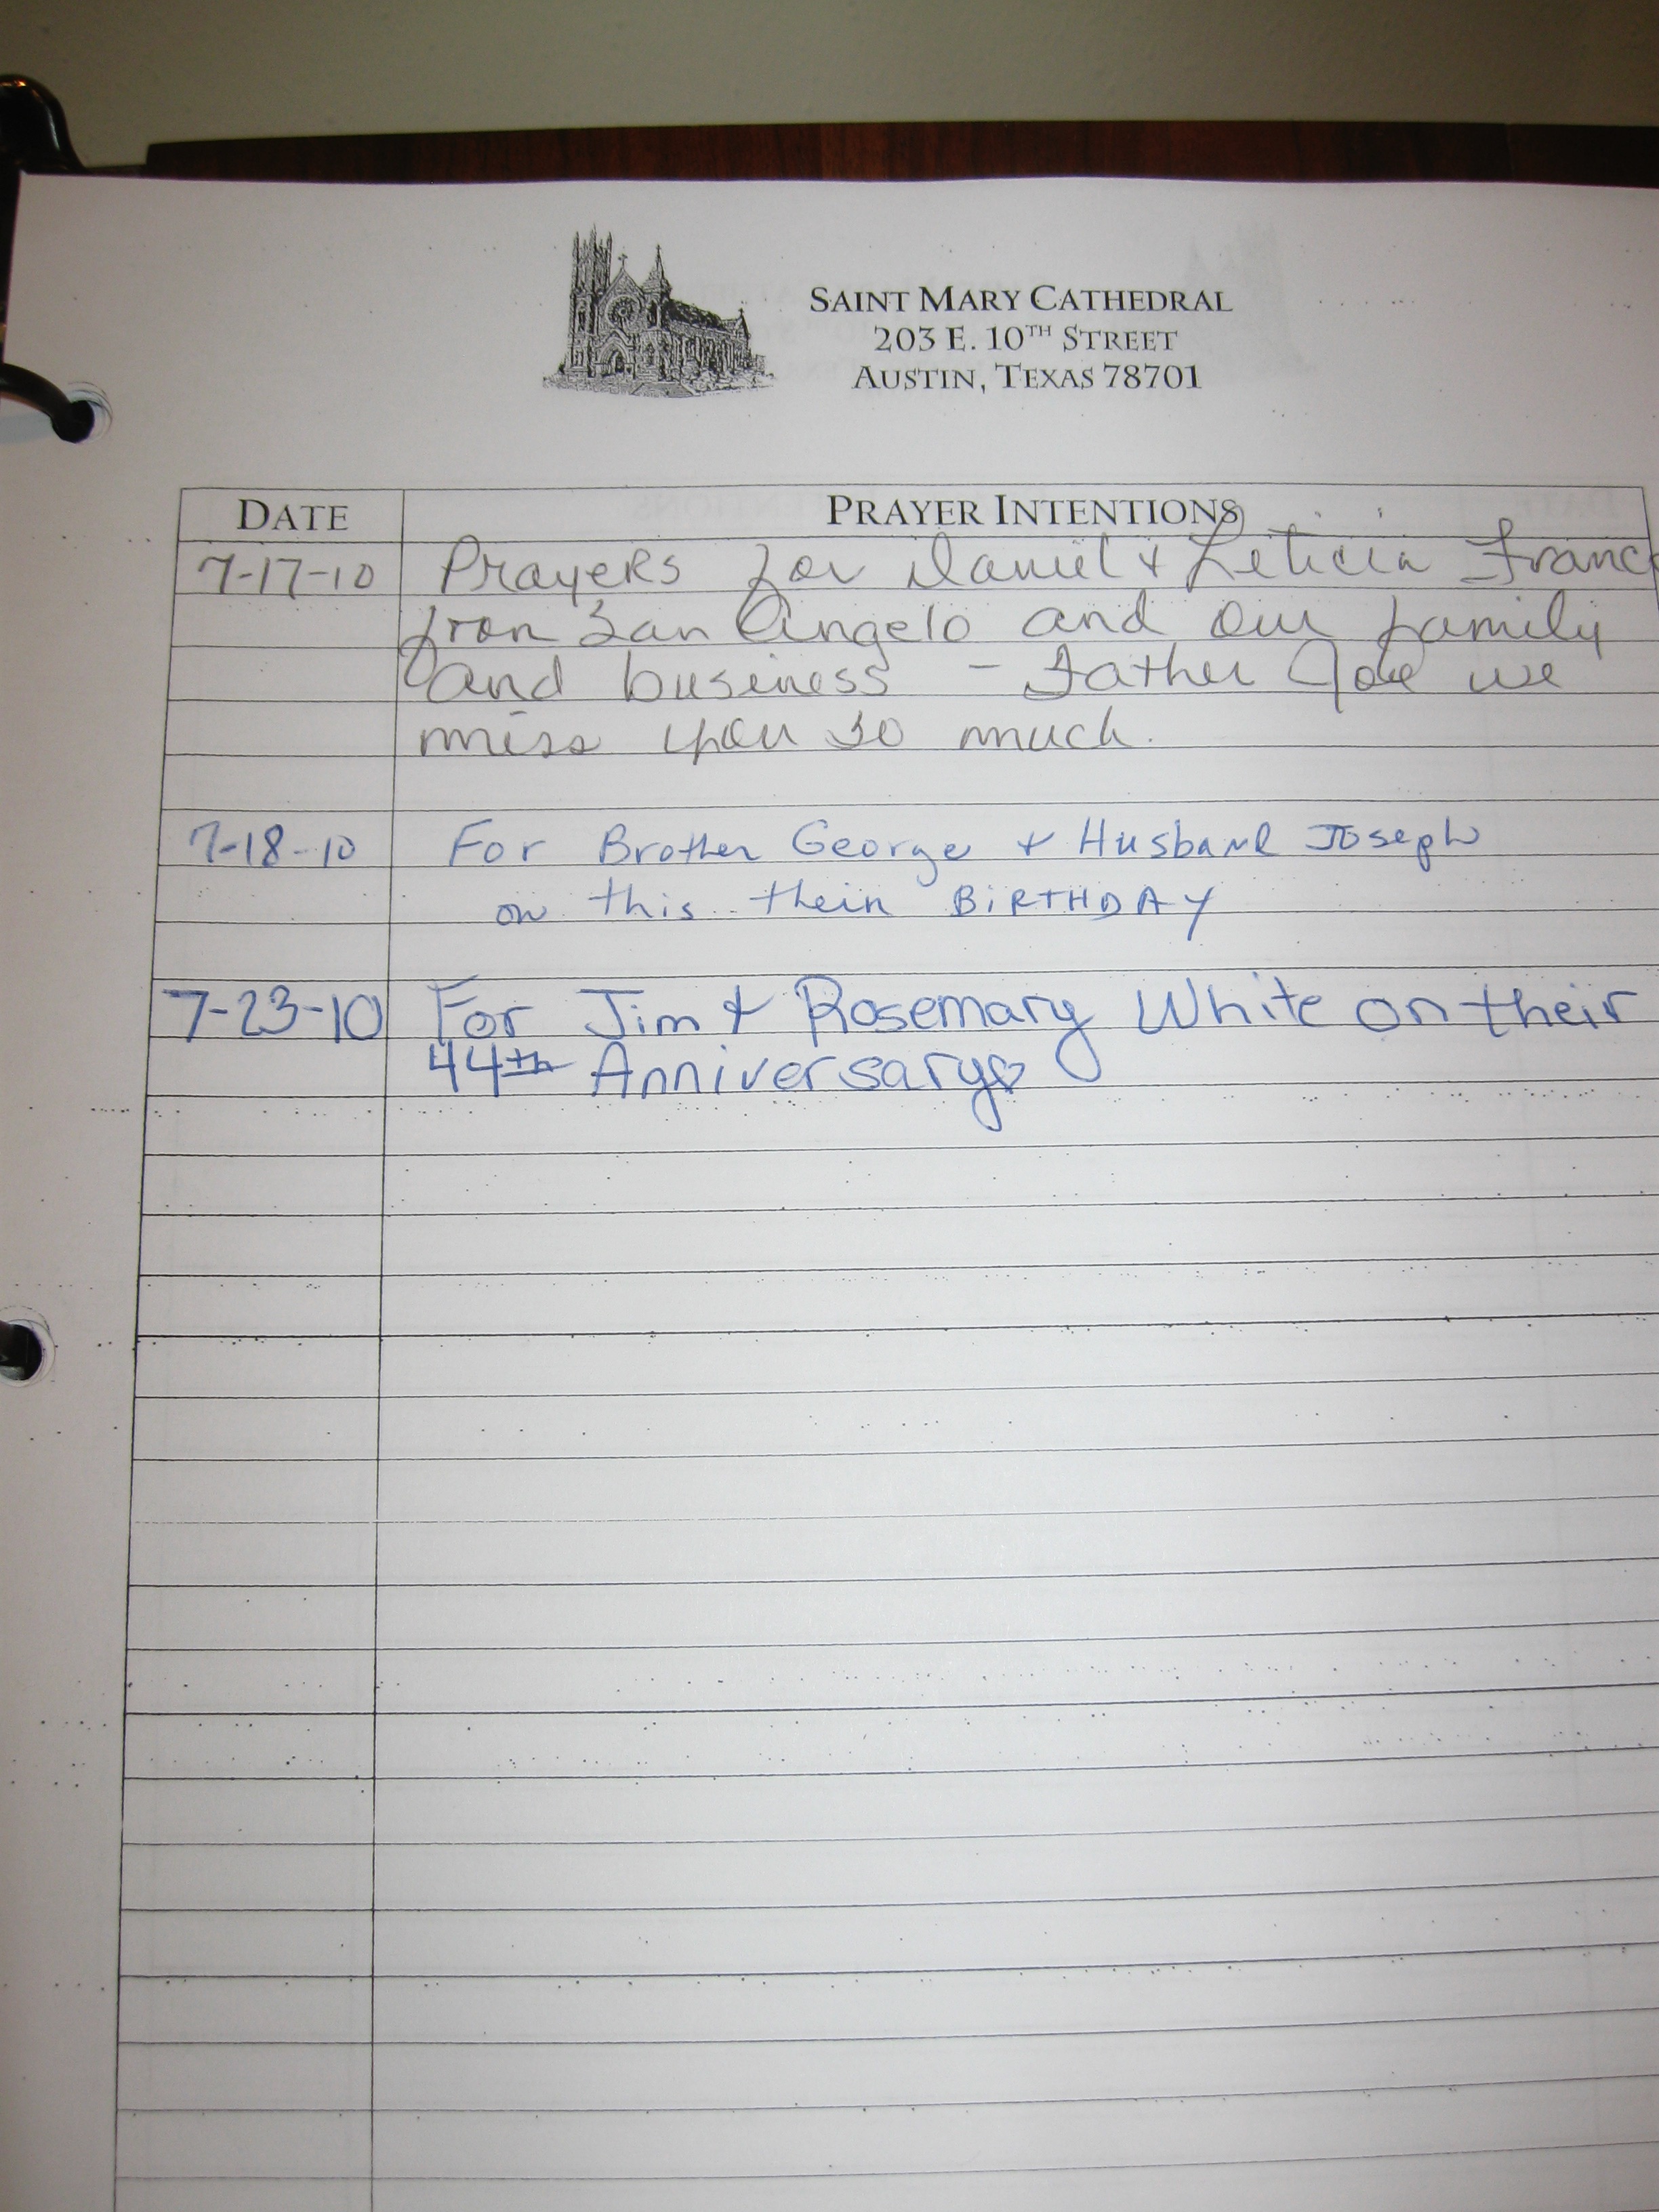 SAINT MARY CATHEDRAL
203 E. 10TH STREET
AUSTIN, TEXAS 78701
DATE PRAYER INTENTIONS
7-17-10 Prayers for Daniel & Leticia Franc
from San Angelo and our family
and business - Father Joe we
miss you so much.
7-18-10 For Brother George & Husband Joseph
on this their BIRTHDAY
7-23-10 For Jim & Rosemary White on their
44th Anniversary